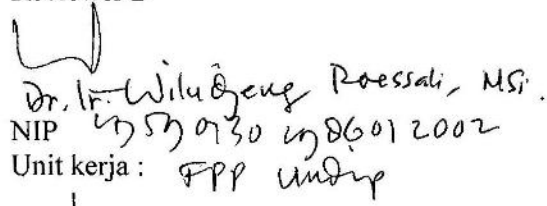 Dr. Ir. Wiludjeng Roessali, MSi.
NIP 19590130 198601 2002
Unit kerja : FPP Undip